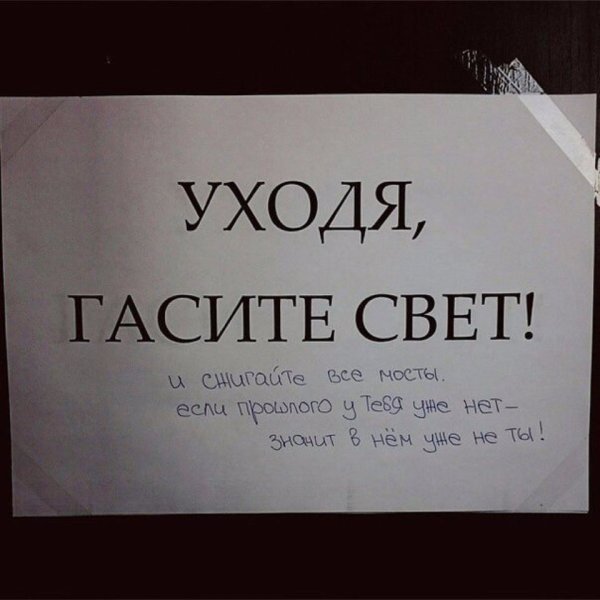 УХОДЯ,
ГАСИТЕ СВЕТ!
и сжигайте все мосты.
если прошлого у тебя уже нет–
значит в нём уже не ты!